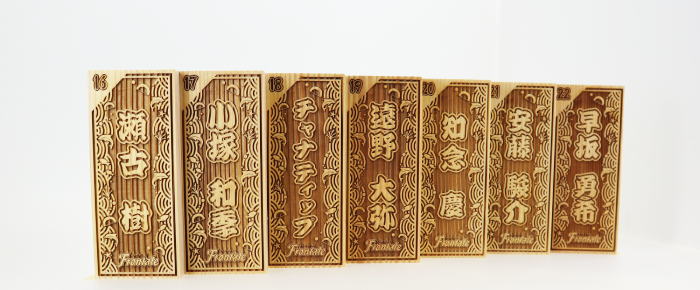 16
瀬古 樹
Frontale
17
小塚 和季
Frontale
18
チャナティップ
Frontale
19
遠野 大弥
Frontale
20
知念 慶
Frontale
21
安藤 駿介
Frontale
22
早坂 勇希
Frontale